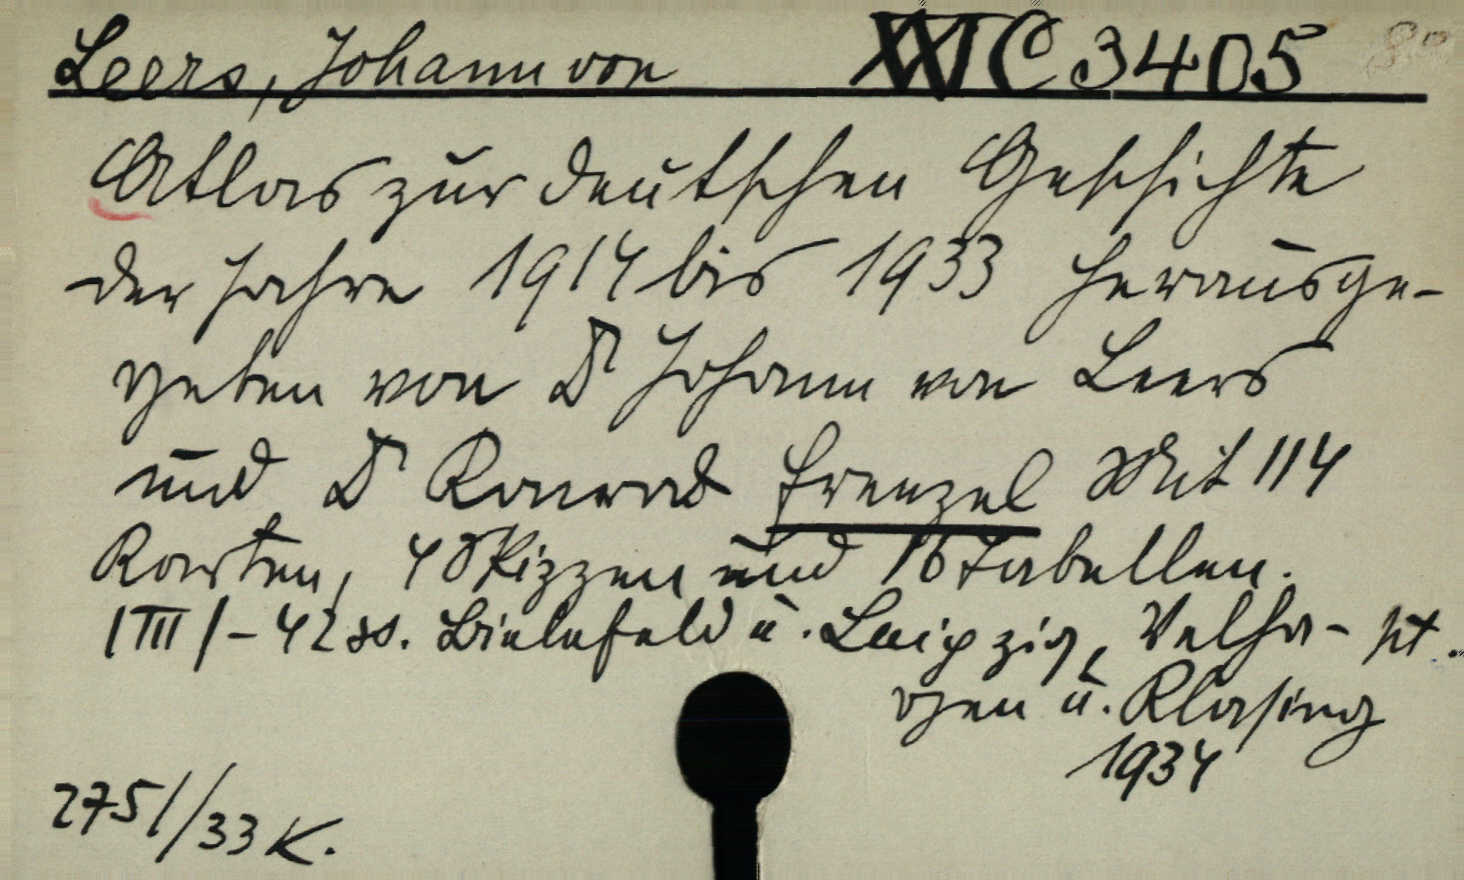 Leers, Johann von XXVI C 3405 8°
Atlas zur deutschen Geschichte
der Jahre 1914 bis 1933 herausge-
geben von Dr Johann von Leers
und Dr Konrad Frenzel Mit 114
Karten, 48 Skizzen und 16 Tabellen.
/III/-42 ss. Bielefeld u. Leipzig, Velha-
gen u. Klasing
1934
2751//33 K.